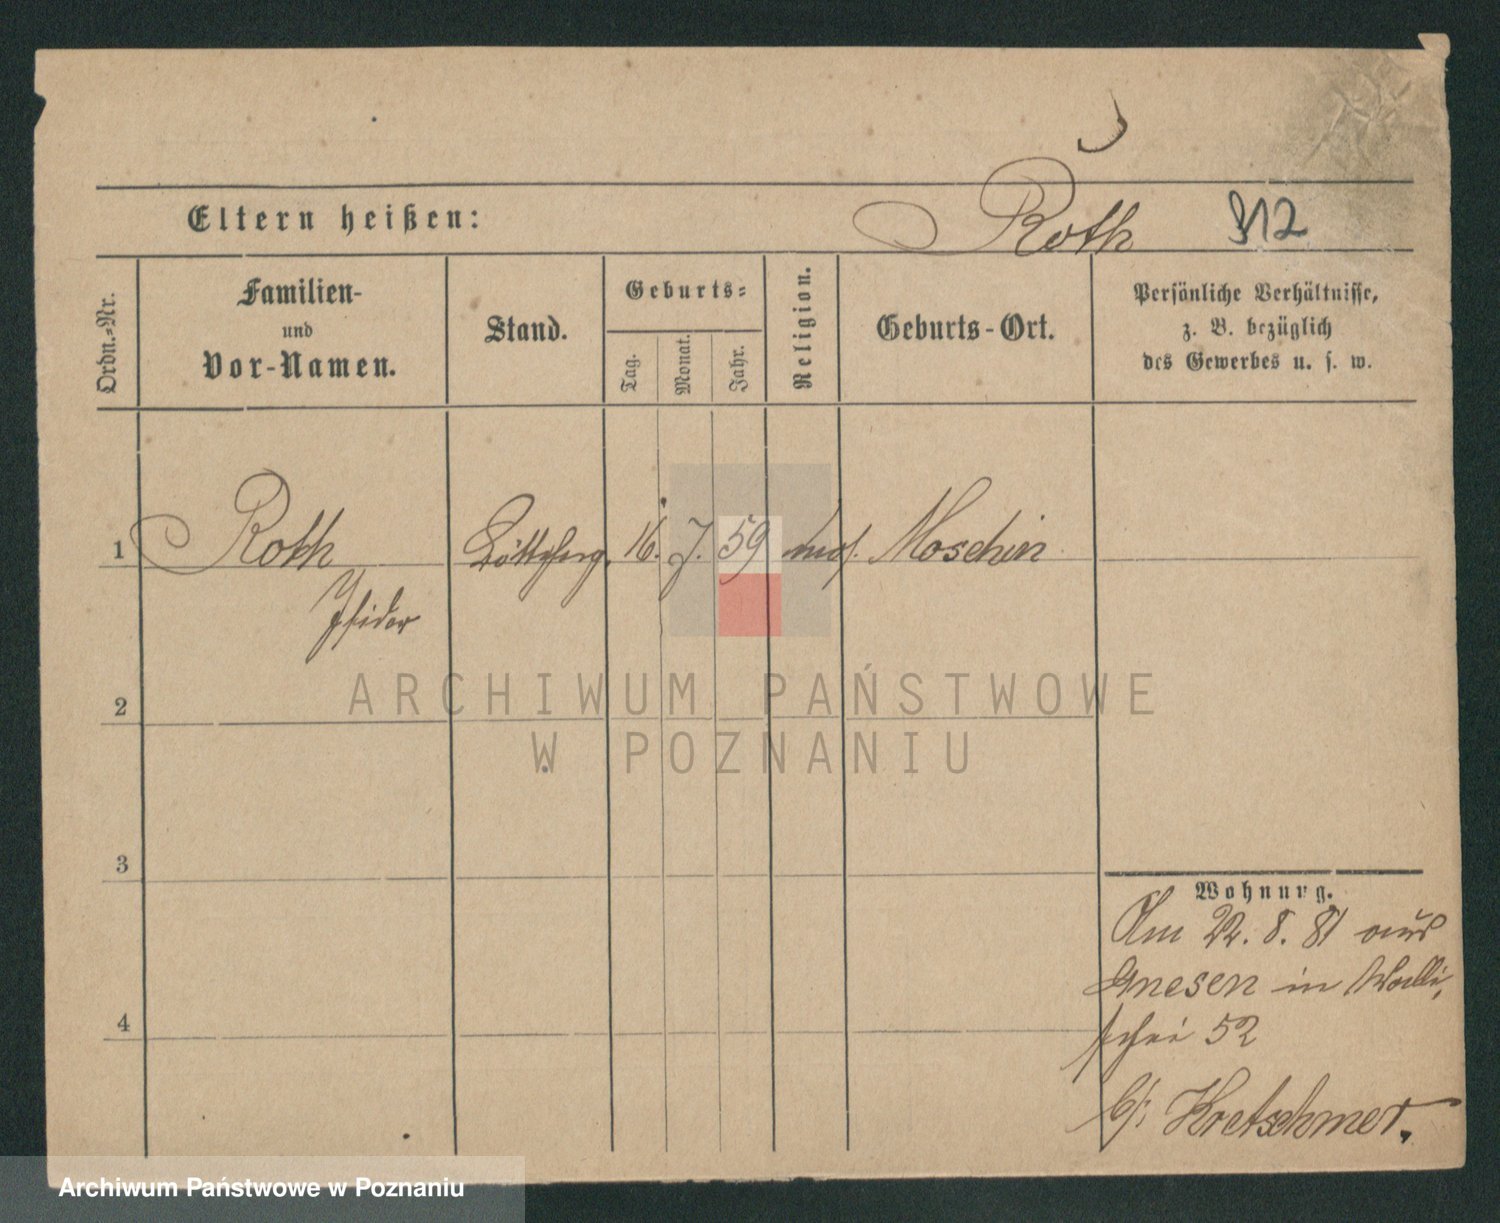 Eltern heißen:
Roth 312
Ordn.-Nr.
Familien-
und
Vor-Namen.
Stand.
Geburts-
Tag.
Monat.
Jahr.
Religion.
Geburts-Ort.
Persönliche Verhältnisse,
z. B. bezüglich
des Gewerbes u. s. w.
1 Roth 16. 7. 59 mos. Moschin
Isidor
2
3
4
Wohnung.
Am 22. 8. 81 aus
Gnesen in Walli,
schei 52
b/: Kretschmer.
ARCHIWUM PAŃSTWOWE
W POZNANIU
Archiwum Państwowe w Poznaniu